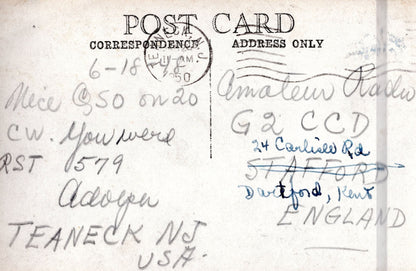 POST CARD
CORRESPONDENCE
ADDRESS ONLY
TEANECK N.J.
AM
50
6-18
Nice QSO on 20
CW. You were
RST 579
Adolph
TEANECK NJ
USA.
Amateur Radio
G2 CCD
24 Carlisle Rd
STAFFORD
Dartford, Kent
ENGLAND